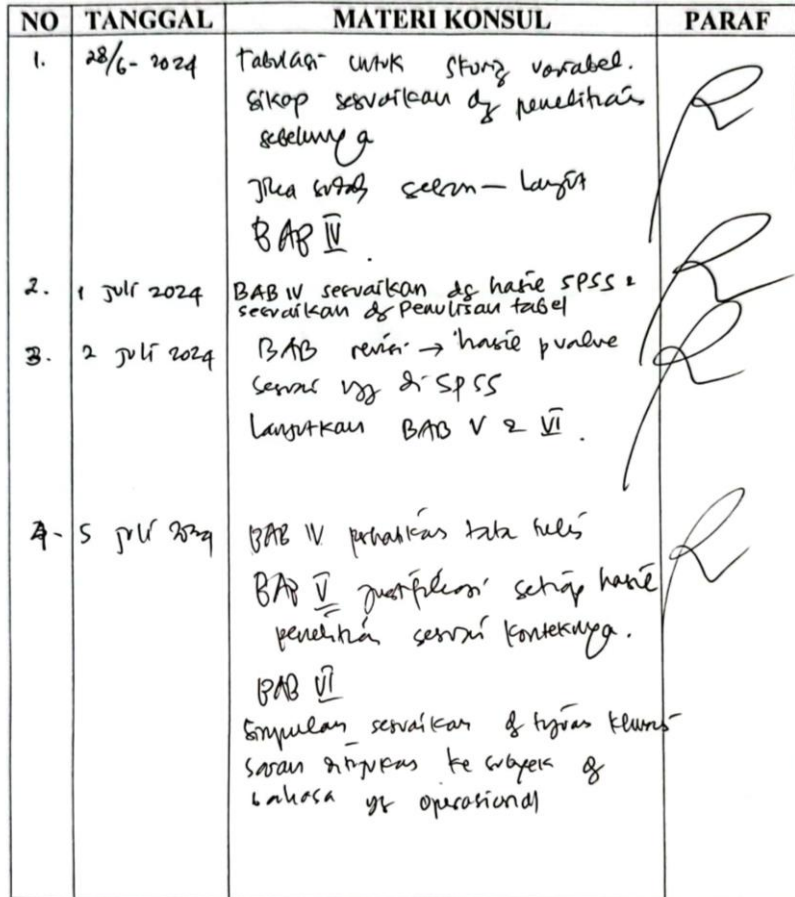 NO TANGGAL MATERI KONSUL PARAF
1. 28/6-2024 Tabulasi untuk variabel.
sikap sesuaikan dg penelitian
sebelumnya
Jika sudah – Lanjut
BAB IV.
2. 1 Juli 2024 BAB IV sesuaikan dg hasil SPSS &
sesuaikan dg Penulisan tabel
3. 2 Juli 2024 BAB revisi → hasil pvalue
sesuai yg di SPSS
Lanjutkan BAB V & VI.
4- 5 Juli 2024 BAB IV perhatikan tata tulis
BAB V justifikasi setiap hasil
penelitian sesuai konteknya.
BAB VI
Simpulan sesuaikan dg tujuan khusus
saran ditujukan ke subyek dg
bahasa yg operasional